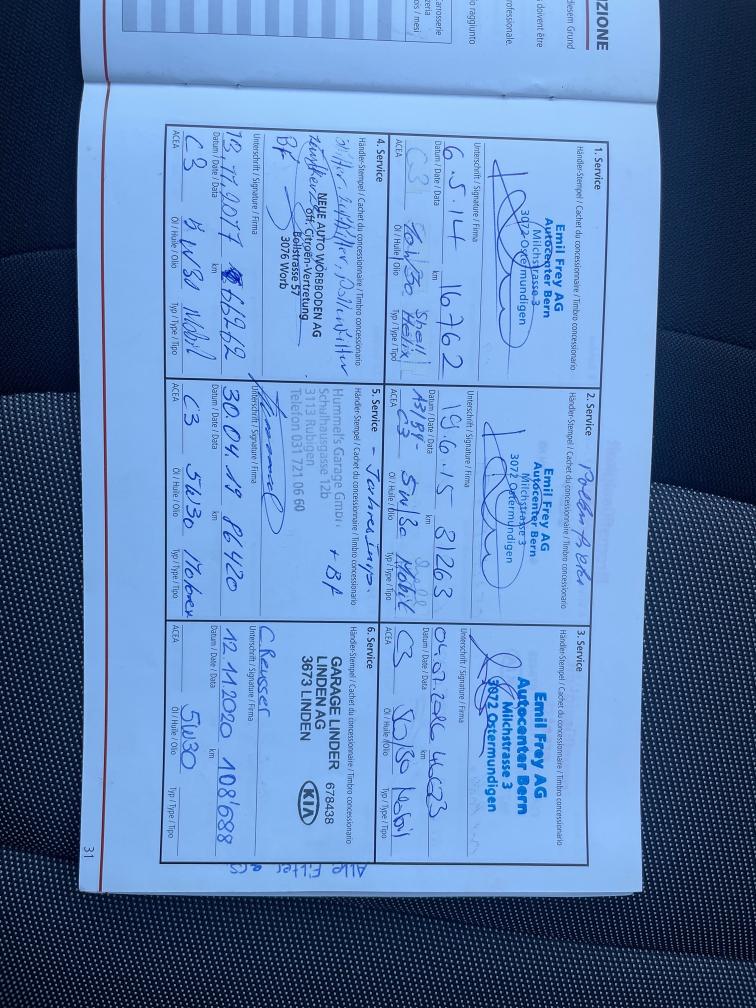 ZIONE
diesem Grund
doivent être
professionale.
o raggiunto
1. Service
Händler-Stempel / Cachet du concessionnaire / Timbro concessionario
Emil Frey AG
Autocenter Bern
Milchstrasse 3
3072 Ostermundigen
Unterschrift / Signature / Firma
6.5.14 16762
Datum / Date / Data km
C3 10W30 Shell Helix
ACEA Öl / Huile / Olio Typ / Type / Tipo
2. Service
Händler-Stempel / Cachet du concessionnaire / Timbro concessionario
Emil Frey AG
Autocenter Bern
Milchstrasse 3
3072 Ostermundigen
Unterschrift / Signature / Firma
19.6.15 31263
Datum / Date / Data km
C3 5W30 Mobil
ACEA Öl / Huile / Olio Typ / Type / Tipo
3. Service
Händler-Stempel / Cachet du concessionnaire / Timbro concessionario
Emil Frey AG
Autocenter Bern
Milchstrasse 3
3072 Ostermundigen
Unterschrift / Signature / Firma
04.07.2016 46623
Datum / Date / Data km
C3 5W30 Mobil
ACEA Öl / Huile / Olio Typ / Type / Tipo
4. Service
Händler-Stempel / Cachet du concessionnaire / Timbro concessionario
Ölfilter, Luftfilter, Pollenfilter
NEUE AUTO WÖRBODEN AG
off. Citroën-Vertretung
Bollstrasse 57
3076 Worb
BF
Unterschrift / Signature / Firma
13.11.2017 66762
Datum / Date / Data km
C3 5W30 Mobil
ACEA Öl / Huile / Olio Typ / Type / Tipo
5. Service - Jahresinsp.
Händler-Stempel / Cachet du concessionnaire / Timbro concessionario
+ BF
Hummel's Garage GmbH
Schulhausgasse 12b
3113 Rubigen
Telefon 031 721 06 60
Unterschrift / Signature / Firma
30.04.19 86420
Datum / Date / Data km
C3 5W30 Motorex
ACEA Öl / Huile / Olio Typ / Type / Tipo
6. Service
Händler-Stempel / Cachet du concessionnaire / Timbro concessionario
GARAGE LINDER 678438
LINDEN AG
3673 LINDEN KIA
C Reusser
Unterschrift / Signature / Firma
12.11.2020 108'688
Datum / Date / Data km
5W30
ACEA Öl / Huile / Olio Typ / Type / Tipo
Alle Filter
31